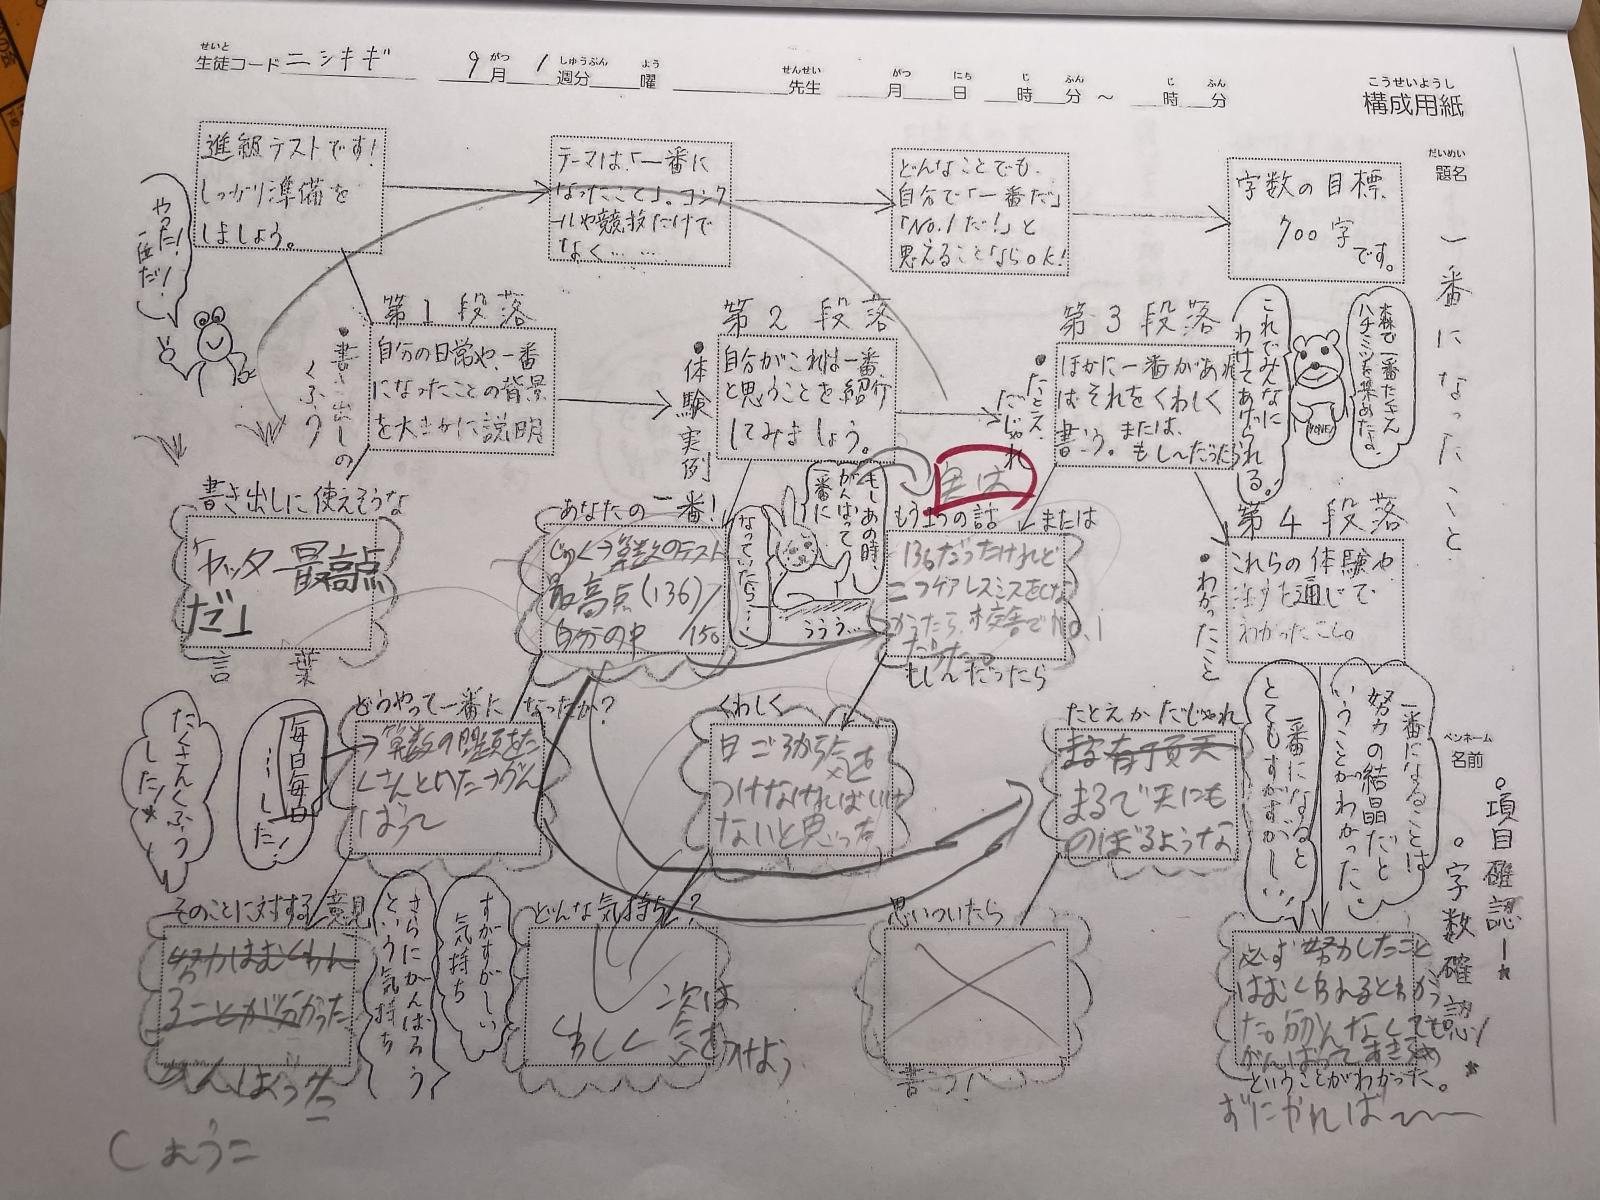 生徒コード ニシキギ 9月 1週分 曜 先生 月 日 時 分 ～ 時 分
構成用紙
題名 一番になったこと
ペンネーム 名前
。項目確認！
。字数確認！
進級テストです！
しっかり準備を
しましょう。
テーマは、「一番に
なったこと」。コンク
ールや競技だけで
なく……
どんなことでも、
自分で「一番だ」
「No.1だ！」と
思えることならOK！
字数の目標、
700字
です。
やった！
一位だ！
第1段落
・書き出しの
くふう
自分の日常や、一番
になったことの背景
を大まかに説明
第2段落
・体験実例
自分がこれは一番、
と思うことを紹介
してみましょう。
第3段落
・たとえ、
だじゃれ
ほかに一番があれ
ばそれをくわしく
書こう。または、
もし～だったら
これでみんなに
わけてあげられる。
森で一番たくさん
ハチミツを集めたよ。
HONEY
第4段落
・わかったこと
これらの体験や
を通じて
わかったこと。
書き出しに使えそうな
「ヤッター最高点
だ」
言葉
あなたの一番！
じゅくの算数のテスト
最高点(136)
自分の中 /150
もしあの時、
がんばって
一番に
なっていたら…
ううう…
もう1つの話 または
136だったけれど
二つケアレスミスをしな
かったら、校舎でNo.1
だった
もし～だったら
どうやって一番になったか？
算数の問題をた
くさんといた
ばって
「毎日毎日
…した！
たくさんくふう
した！
くわしく
日ごろから気を
つけなければいけ
ないと思った
たとえかだじゃれ
まるで天にも
のぼるような
一番になることは
努力の結晶だと
いうことがわかった。
一番になると
とてもすがすがしい
そのことに対する意見
努力はむくわれ
ることが分かった
さらにがんばろう
という気持ち
すがすがしい
気持ち
どんな気持ち？
次は
くわしく 気を
つけよう
思いついたら
書こう！
必ず努力したこと
はむくわれるとわかっ
た。
がんばって
ということがわかった。
ずにかれば～
しょうこ